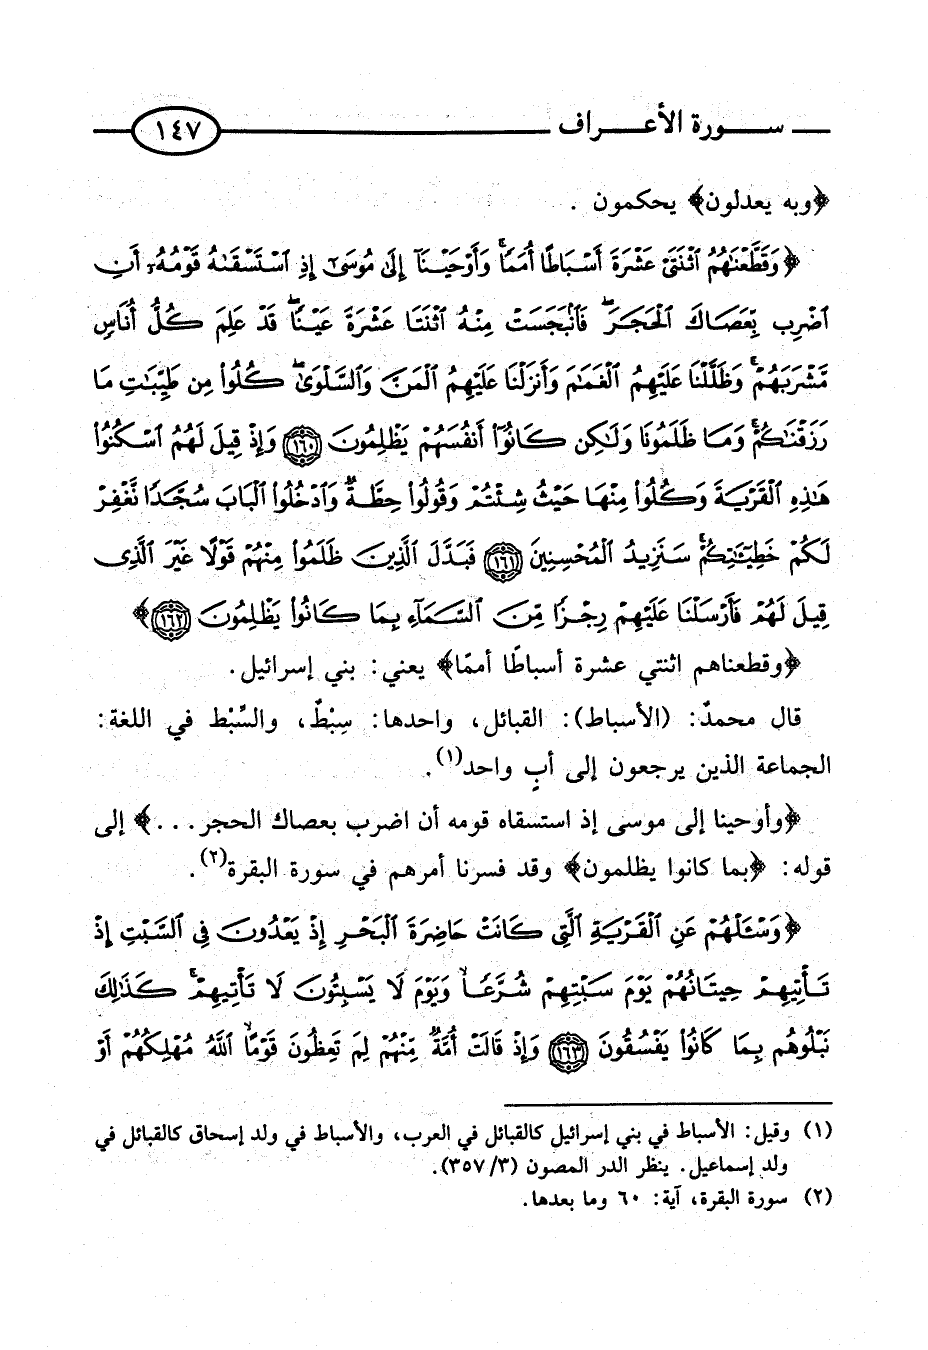 سورة الأعراف ١٤٧
﴿وبه يعدلون﴾ يحكمون .
﴿وَقَطَّعْنَٰهُمُ ٱثْنَتَىْ عَشْرَةَ أَسْبَاطًا أُمَمًا ۚ وَأَوْحَيْنَآ إِلَىٰ مُوسَىٰٓ إِذِ ٱسْتَسْقَىٰهُ قَوْمُهُۥٓ أَنِ
ٱضْرِب بِّعَصَاكَ ٱلْحَجَرَ ۖ فَٱنۢبَجَسَتْ مِنْهُ ٱثْنَتَا عَشْرَةَ عَيْنًا ۖ قَدْ عَلِمَ كُلُّ أُنَاسٍ
مَّشْرَبَهُمْ ۚ وَظَلَّلْنَا عَلَيْهِمُ ٱلْغَمَٰمَ وَأَنزَلْنَا عَلَيْهِمُ ٱلْمَنَّ وَٱلسَّلْوَىٰ ۖ كُلُوا۟ مِن طَيِّبَٰتِ مَا
رَزَقْنَٰكُمْ ۚ وَمَا ظَلَمُونَا وَلَٰكِن كَانُوٓا۟ أَنفُسَهُمْ يَظْلِمُونَ ﴿١٦٠﴾ وَإِذْ قِيلَ لَهُمُ ٱسْكُنُوا۟
هَٰذِهِ ٱلْقَرْيَةَ وَكُلُوا۟ مِنْهَا حَيْثُ شِئْتُمْ وَقُولُوا۟ حِطَّةٌ وَٱدْخُلُوا۟ ٱلْبَابَ سُجَّدًا نَّغْفِرْ
لَكُمْ خَطِيٓـَٰٔتِكُمْ ۚ سَنَزِيدُ ٱلْمُحْسِنِينَ ﴿١٦١﴾ فَبَدَّلَ ٱلَّذِينَ ظَلَمُوا۟ مِنْهُمْ قَوْلًا غَيْرَ ٱلَّذِى
قِيلَ لَهُمْ فَأَرْسَلْنَا عَلَيْهِمْ رِجْزًا مِّنَ ٱلسَّمَآءِ بِمَا كَانُوا۟ يَظْلِمُونَ ﴿١٦٢﴾﴾
﴿وقطعناهم اثنتي عشرة أسباطًا أممًا﴾ يعني: بني إسرائيل.
قال محمدٌ: (الأسباط): القبائل، واحدها: سِبْطٌ، والسِّبْط في اللغة:
الجماعة الذين يرجعون إلى أبٍ واحد(١).
﴿وأوحينا إلى موسى إذ استسقاه قومه أن اضرب بعصاك الحجر...﴾ إلى
قوله: ﴿بما كانوا يظلمون﴾ وقد فسرنا أمرهم في سورة البقرة(٢).
﴿وَسْـَٔلْهُمْ عَنِ ٱلْقَرْيَةِ ٱلَّتِى كَانَتْ حَاضِرَةَ ٱلْبَحْرِ إِذْ يَعْدُونَ فِى ٱلسَّبْتِ إِذْ
تَأْتِيهِمْ حِيتَانُهُمْ يَوْمَ سَبْتِهِمْ شُرَّعًا وَيَوْمَ لَا يَسْبِتُونَ ۙ لَا تَأْتِيهِمْ ۚ كَذَٰلِكَ
نَبْلُوهُم بِمَا كَانُوا۟ يَفْسُقُونَ ﴿١٦٣﴾ وَإِذْ قَالَتْ أُمَّةٌ مِّنْهُمْ لِمَ تَعِظُونَ قَوْمًا ۙ ٱللَّهُ مُهْلِكُهُمْ أَوْ
(١) وقيل: الأسباط في بني إسرائيل كالقبائل في العرب، والأسباط في ولد إسحاق كالقبائل في
ولد إسماعيل. ينظر الدر المصون (٣٥٧/٣).
(٢) سورة البقرة، آية: ٦٠ وما بعدها.